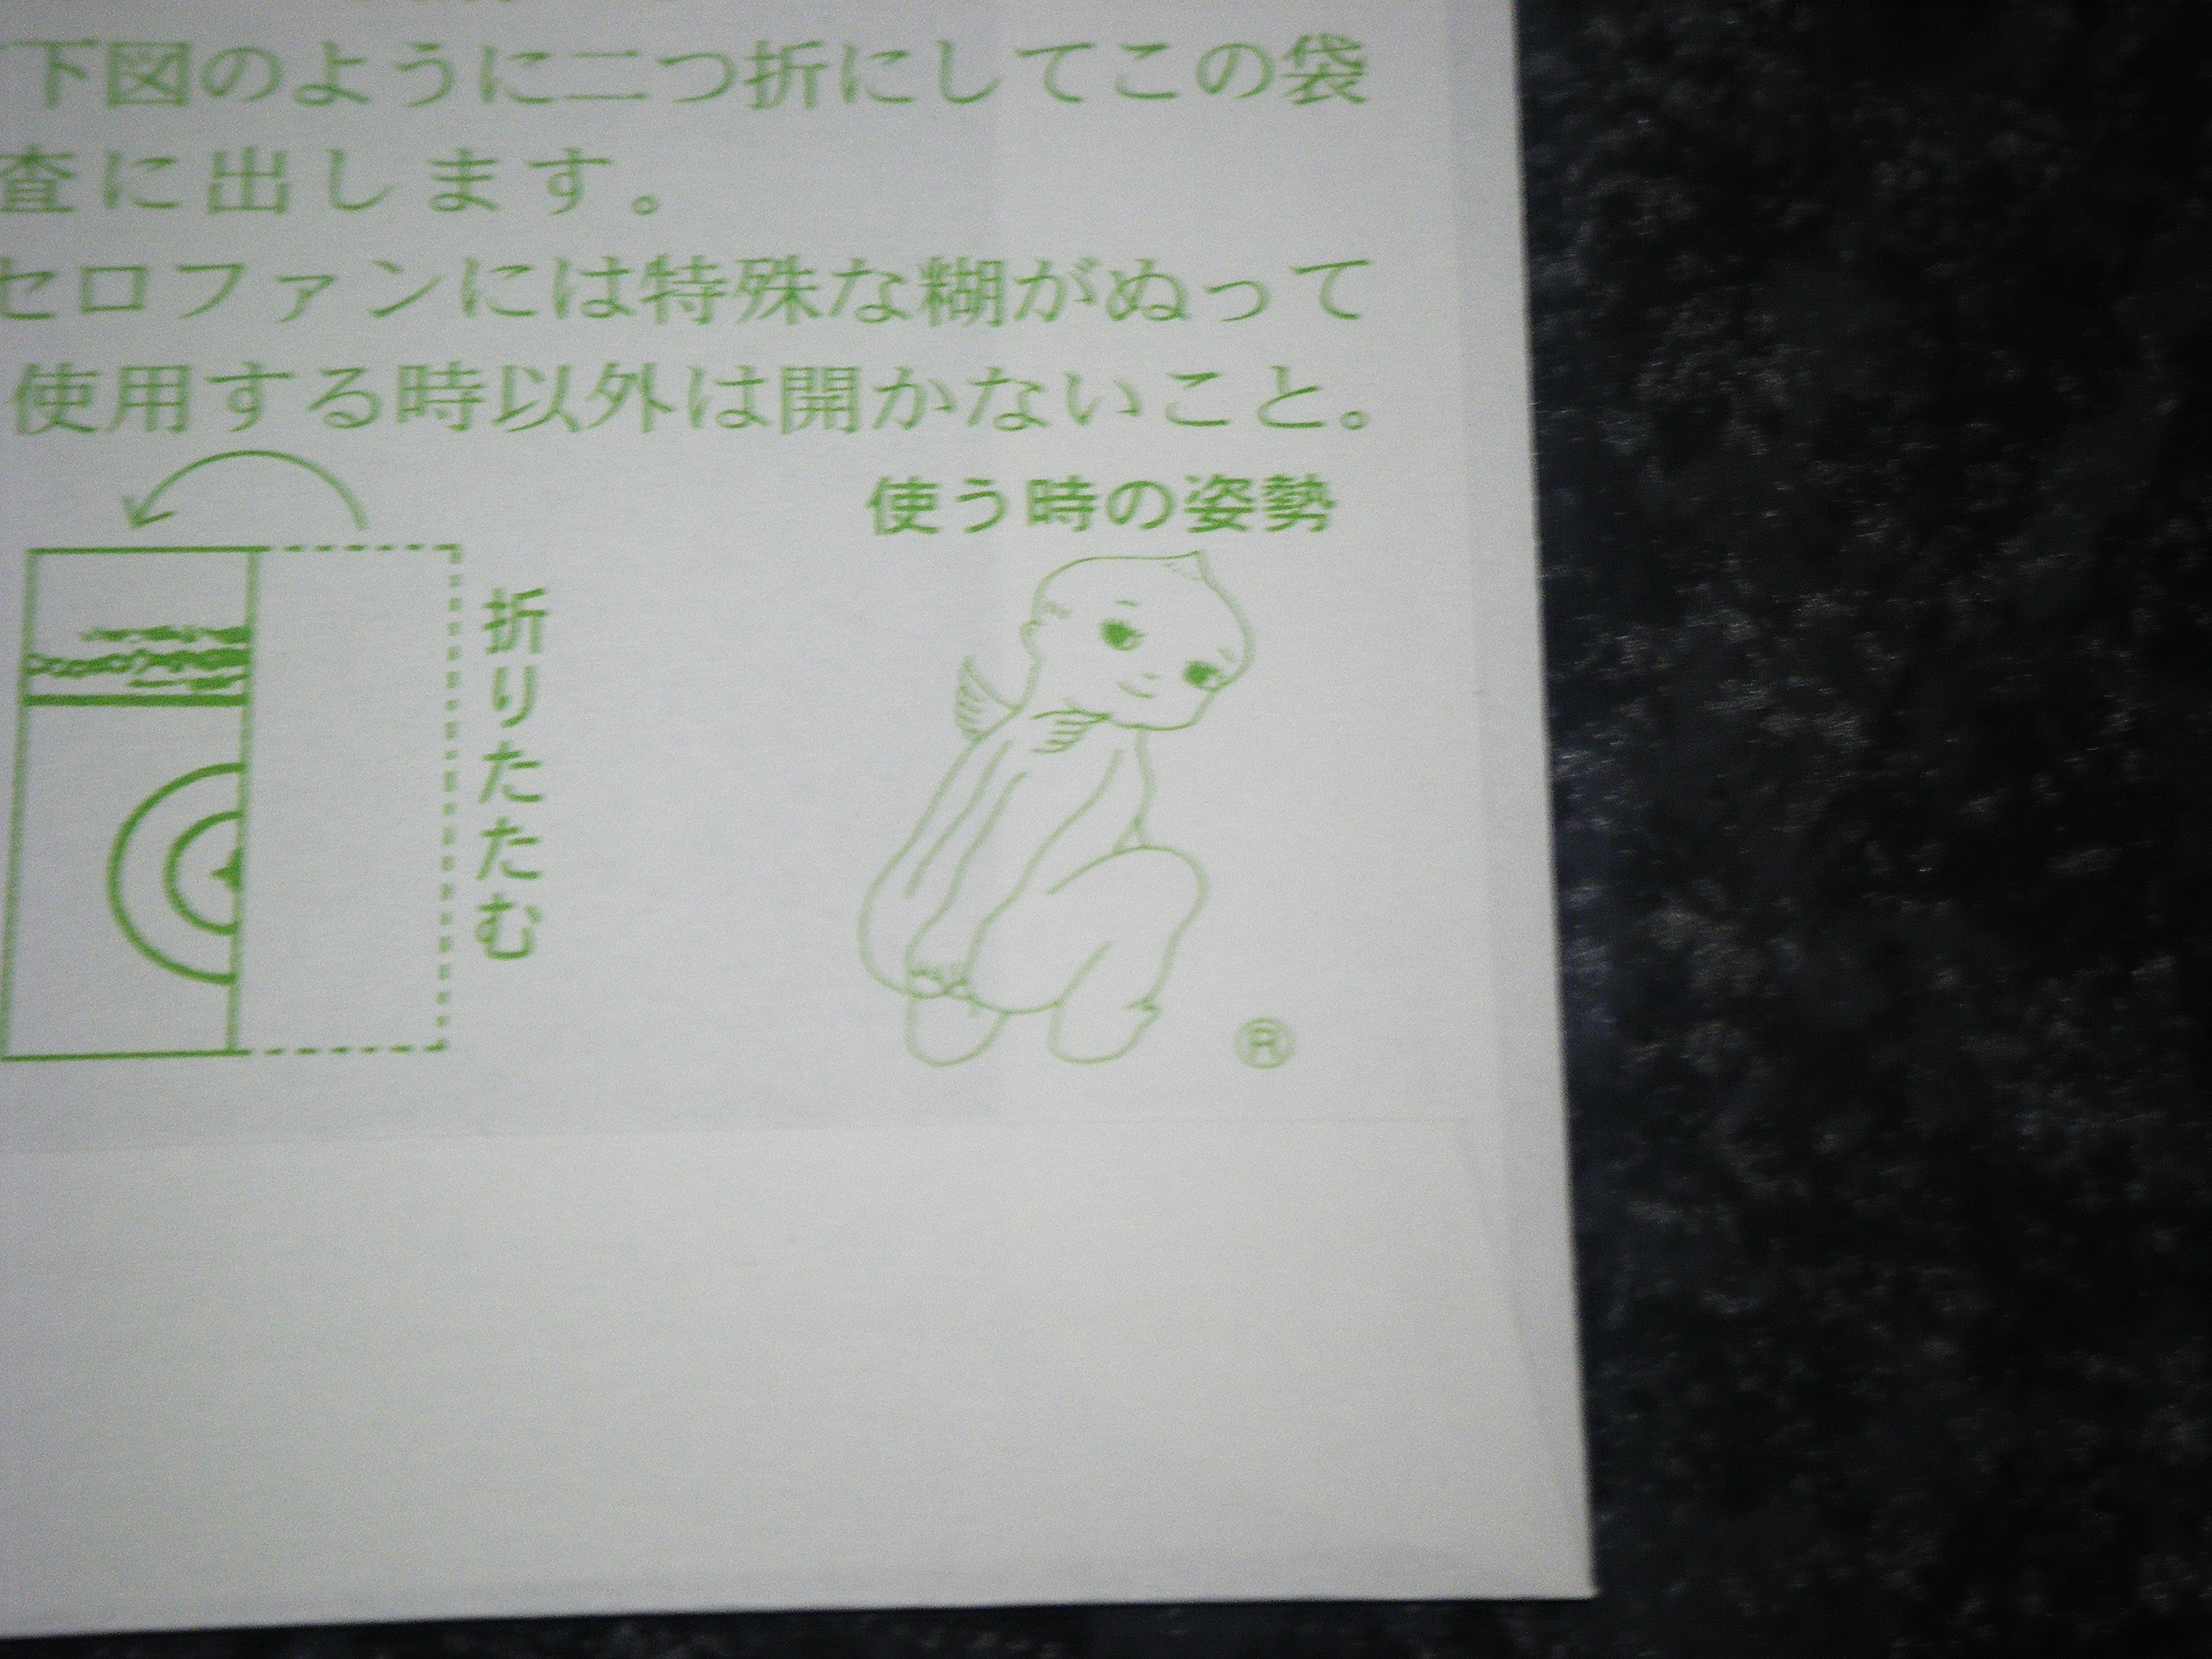 下図のように二つ折にしてこの袋
査に出します。
セロファンには特殊な糊がぬって
使用する時以外は開かないこと。
使う時の姿勢
折りたたむ
®